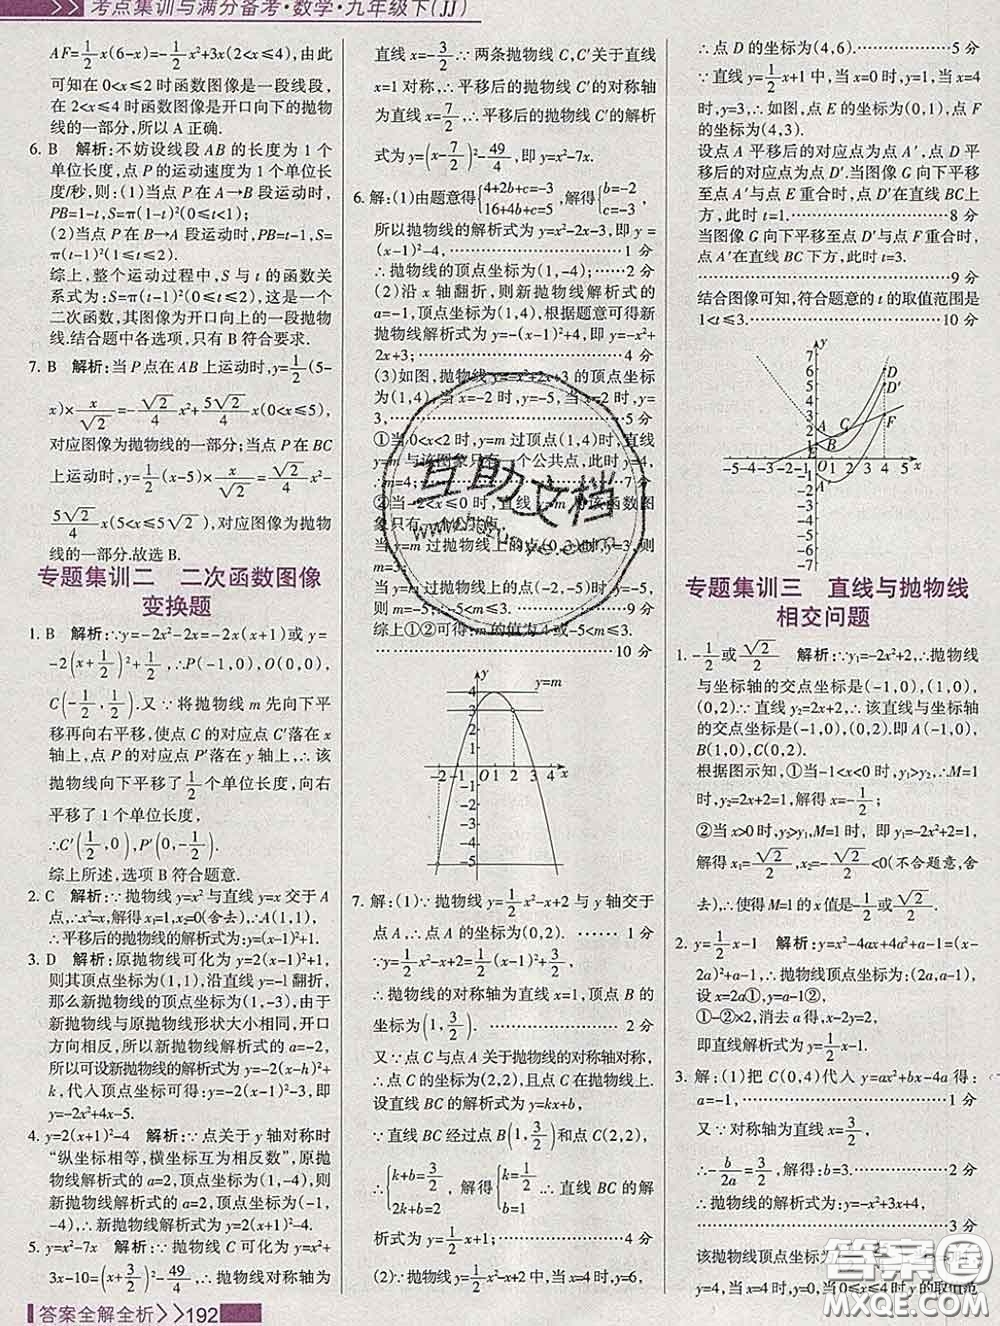 >> 考点集训与满分备考·数学·九年级下(JJ)
AF=1/2x(6-x)=-1/2x²+3x(2<x≤4),由此
可知在0<x≤2时函数图像是一段线段,
在2<x≤4时函数图像是开口向下的抛物
线的一部分,所以A正确.
6. B 解析:不妨设线段AB的长度为1个
单位长度,点P的运动速度为1个单位长
度/秒,则:(1)当点P在A→B段运动时,
PB=1-t,S=π(1-t)²(0≤t<1);
(2)当点P在B→A段运动时,PB=t-1,S=
π(t-1)²(1≤t≤2).
综上,整个运动过程中,S与t的函数关
系式为:S=π(t-1)²(0≤t≤2),这是一个
二次函数,其图像为开口向上的一段抛物
线.结合题中各选项,只有B符合要求.
7. B 解析:当P点在AB上运动时,y=1/2(5-
x)×x/√2=-√2/4x²+5√2/4x(0<x≤5),
对应图像为抛物线的一部分;当点P在BC
上运动时,y=1/2(5-x/√2)·x/√2=-√2/4x²+
5√2/4x(5<x≤5√2),对应图像为抛物
线的一部分.故选B.
专题集训二 二次函数图像
变换题
1. B 解析:∵y=-2x²-2x=-2x(x+1)或y=
-2(x+1/2)²+1/2,∴P(-1,0),O(0,0),
C(-1/2,1/2).又∵将抛物线m先向下平
移再向右平移,使点C的对应点C′落在x
轴上,点P的对应点P′落在y轴上,∴该
抛物线向下平移了1/2个单位长度,向右
平移了1个单位长度,
∴C′(1/2,0),P′(0,-1/2).
综上所述,选项B符合题意.
2. C 解析:∵抛物线y=x²与直线y=x交于A
点,∴x²=x,解得x₁=1,x₂=0(舍去),∴A(1,1),
∴平移后的抛物线的解析式为:y=(x-1)²+1.
3. D 解析:原抛物线可化为y=2(x-1)²+1,
则其顶点坐标为(1,1),沿直线y=-1翻折,
那么新抛物线的顶点坐标为(1,-3),由于
新抛物线与原抛物线形状大小相同,开口
方向相反,所以新抛物线解析式的a=-2,
所以可设新抛物线解析式为:y=-2(x-h)²+
k,代入顶点坐标可得:y=-2(x-1)²-3,即
y=-2x²+4x-5.
4. y=2(x+1)²-4 解析:∵点关于y轴对称时
“纵坐标相等,横坐标互为相反数”,原抛
物线解析式的a=2,顶点坐标为(1,-4),则
新抛物线解析式的a=2,顶点坐标为(-1,
-4),∴新抛物线解析式为y=2(x+1)²-4.
5. y=x²-7x 解析:∵抛物线C可化为y=x²+
3x-10=(x+3/2)²-49/4,∴抛物线对称轴为
答案全解全析>>192
直线x=-3/2.∵两条抛物线C,C′关于直线
x=1对称,∴平移后的抛物线C′的对称轴
为直线x=7/2,∴平移后的抛物线C′的解析
式为y=(x-7/2)²-49/4,即y=x²-7x.
6. 解:(1)由题意得{4+2b+c=-3 16+4b+c=5,解得{b=-2 c=-3,
所以抛物线的解析式为y=x²-2x-3,即y=
(x-1)²-4, 1分
∴抛物线的顶点坐标为(1,-4); 2分
(2)沿x轴翻折,则新抛物线解析式的
a=-1,顶点坐标为(1,4),根据题意可得新
抛物线解析式为y=-(x-1)²+4,即y=-x²+
2x+3; 4分
(3)如图,抛物线y=-x²+2x+3的顶点坐标
为(1,4),当x=-2时,y=-5,当x=0时,y=
3, 5分
①当0<x<2时,y=m过顶点(1,4)时,直线
y=m与该图象只有一个公共点,此时y=4,
∴m=4. 7分
②当-2<x≤0时,直线y=m与该函数图
象只有一个公共点,
当y=m过抛物线上的点(0,3)时,y=3,
当y=m过抛物线上的点(-2,-5)时,y=-5,
则m=-5,∴-5<m≤3. 9分
综上①②可得:m的值为4或-5<m≤3.
10分
y y=m
4 3 2 1
-2 O 1 2 3 4 x
-1 -2 -3 -4 -5
7. 解:(1)∵抛物线y=1/2x²-x+2与y轴交于
点A,∴A的坐标为(0,2). 1分
∵y=1/2x²-x+2=1/2(x-1)²+3/2,
∴抛物线的对称轴为直线x=1,顶点B的
坐标为(1,3/2). 2分
又∵点C与点A关于抛物线的对称轴对称,
∴点C的坐标为(2,2),且点C在抛物线上.
设直线BC的解析式为y=kx+b,
∵直线BC经过点B(1,3/2)和点C(2,2),
∴{k+b=3/2 2k+b=2,解得{k=1/2 b=1.∴直线BC的解
析式为y=1/2x+1; 4分
(2)∵抛物线y=1/2x²-x+2中,当x=4时,y=6,
∴点D的坐标为(4,6). 5分
∵直线y=1/2x+1中,当x=0时,y=1,当x=4
时,y=3,∴如图,点E的坐标为(0,1),点F
的坐标为(4,3).
设点A平移后的对应点为点A′,点D平移
后的对应点为点D′.当图像G向下平移
至点A′与点E重合时,点D′在直线BC上
方,此时t=1. 8分
当图像G向下平移至点D′与点F重合时,
点A′在直线BC下方,此时t=3.
9分
结合图像可知,符合题意的t的取值范围是
1<t≤3. 10分
y
7 6 5 4 3
D D′ F A C B
-5 -4 -3 -2 -1 O 1 2 3 4 5 x
-1 -2 -3 -4 -5 -6 -7
专题集训三 直线与抛物线
相交问题
1. -1/2或√2/2 解析:∵y₁=-2x²+2,∴抛物线
与坐标轴的交点坐标是(-1,0),(1,0),
(0,2)∵直线y₂=2x+2,∴该直线与坐标轴
的交点坐标是(-1,0),(0,2).即A(-1,0),
B(1,0),C(0,2).
根据图示知,①当-1<x<0时,y₁>y₂,∴M=1
时,y=2x+2=1,解得x=-1/2;
②当x>0时,y₂>y₁,M=1时,即y₁=-2x²+2=1,
解得x₁=√2/2,x₂=-√2/2<0(不合题意,舍
去),∴使得M=1的x值是-1/2或√2/2.
2. y=1/2x-1 解析:∵y=x²-4ax+4a²+a-1=(x-
2a)²+a-1,∴抛物线顶点坐标为:(2a,a-1),
设x=2a①,y=a-1②,
①-②×2,消去a得,x-2y=2,
即直线解析式为y=1/2x-1.
3. 解:(1)把C(0,4)代入y=ax²+bx-4a得:
a=-1, 1分
又∵对称轴为直线x=3/2,
∴-b/2a=3/2,解得:b=3. 2分
∴抛物线的解析式为y=-x²+3x+4,
3分
该抛物线顶点坐标为
y=4,当x=4时,y=0,当0≤x≤4时,y的取值范
互助文档
答案圈
MXQE.COM